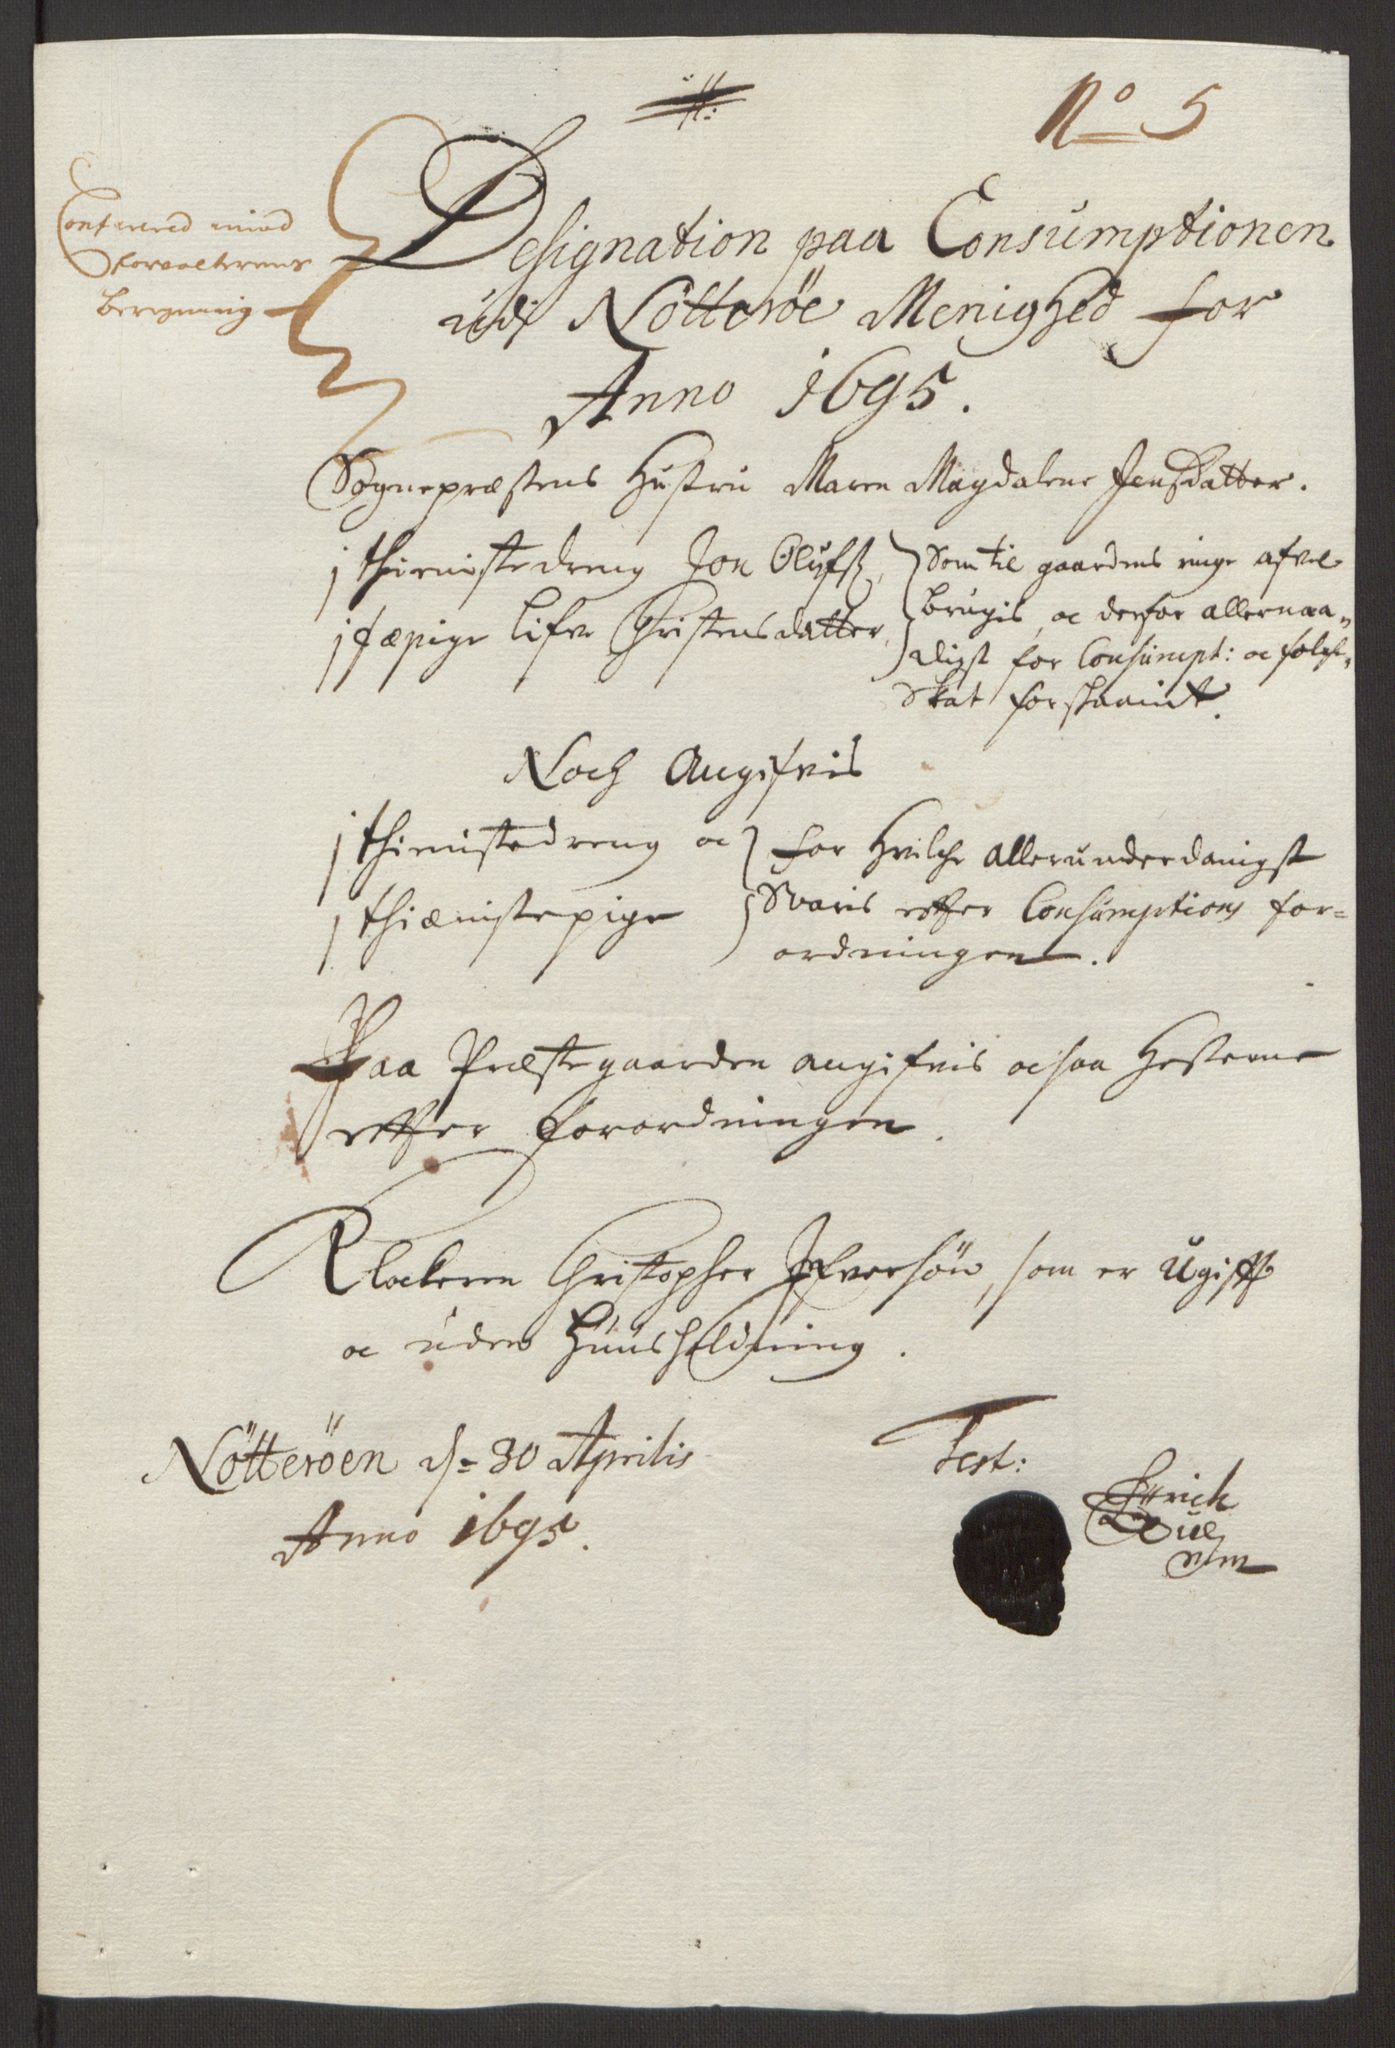 No 5
Conferered imod
forvalterens
beregning
Designation paa Consumptionen
udj Nötteröe Menighed for
Anno 1695.
Sognepræstens Hustru Maren Magdalene Jensdatter.
j thienistedreng Jon Olufsß,
j fæpige Lifve Christensdatter,
Som til gaardens ringe afvel
brugis, oc derfor allernaa„
digst for Consumpt: oc folche„
Skat forskaanet.
Noch Angifvis
j thienistedreng oc
j thiænistepige
for hvilche allerunderdanigst
Svaris effter Consumptions for=
ordningen.
Paa Præstegaarden angifvis ocsaa Hestene
effter forordningen.
Klockeren Christopher Ifversön, som er Ugifft
oc uden Huusholdning.
Nötteröen d= 30 Aprilis
Anno 1695.
Test: